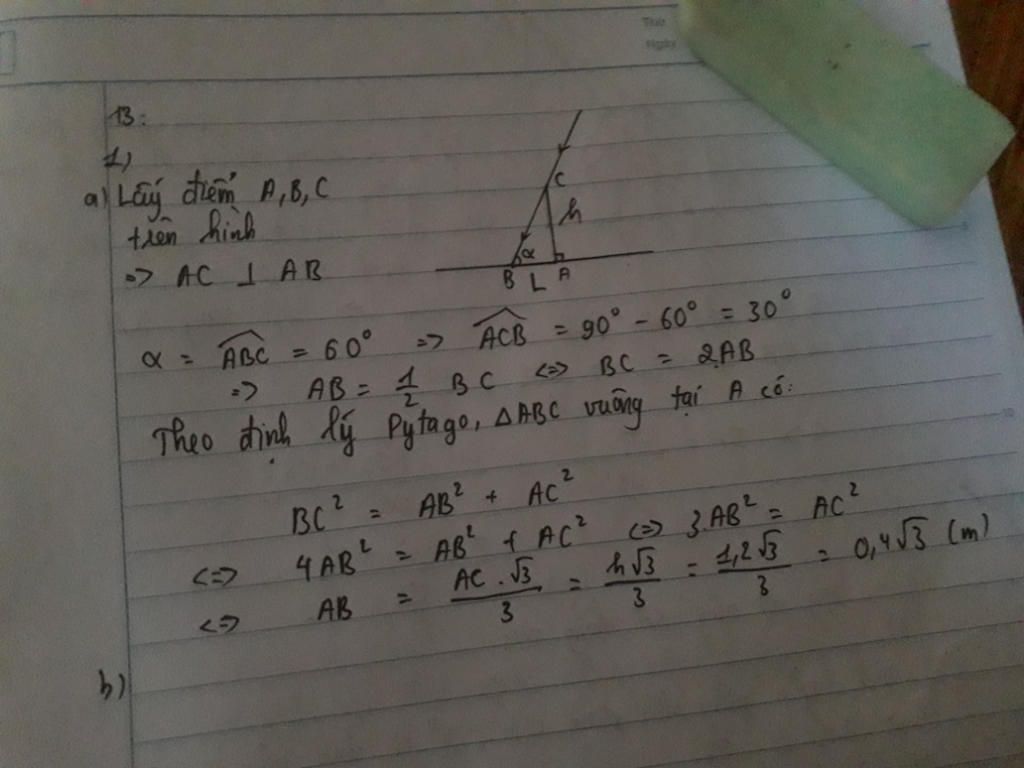 Thứ
Ngày
13:
1)
a) Lấy điểm A, B, C
trên hình
=> AC ⊥ AB
C
h
α
B L A
α = \widehat{ABC} = 60° => \widehat{ACB} = 90° - 60° = 30°
=> AB = \frac{1}{2} BC <=> BC = 2AB
Theo định lý Pytago, ΔABC vuông tại A có:
BC² = AB² + AC²
<=> 4AB² = AB² + AC² <=> 3AB² = AC²
<=> AB = \frac{AC . √3}{3} = \frac{h√3}{3} = \frac{1,2√3}{3} = 0,4√3 (m)
b)
10